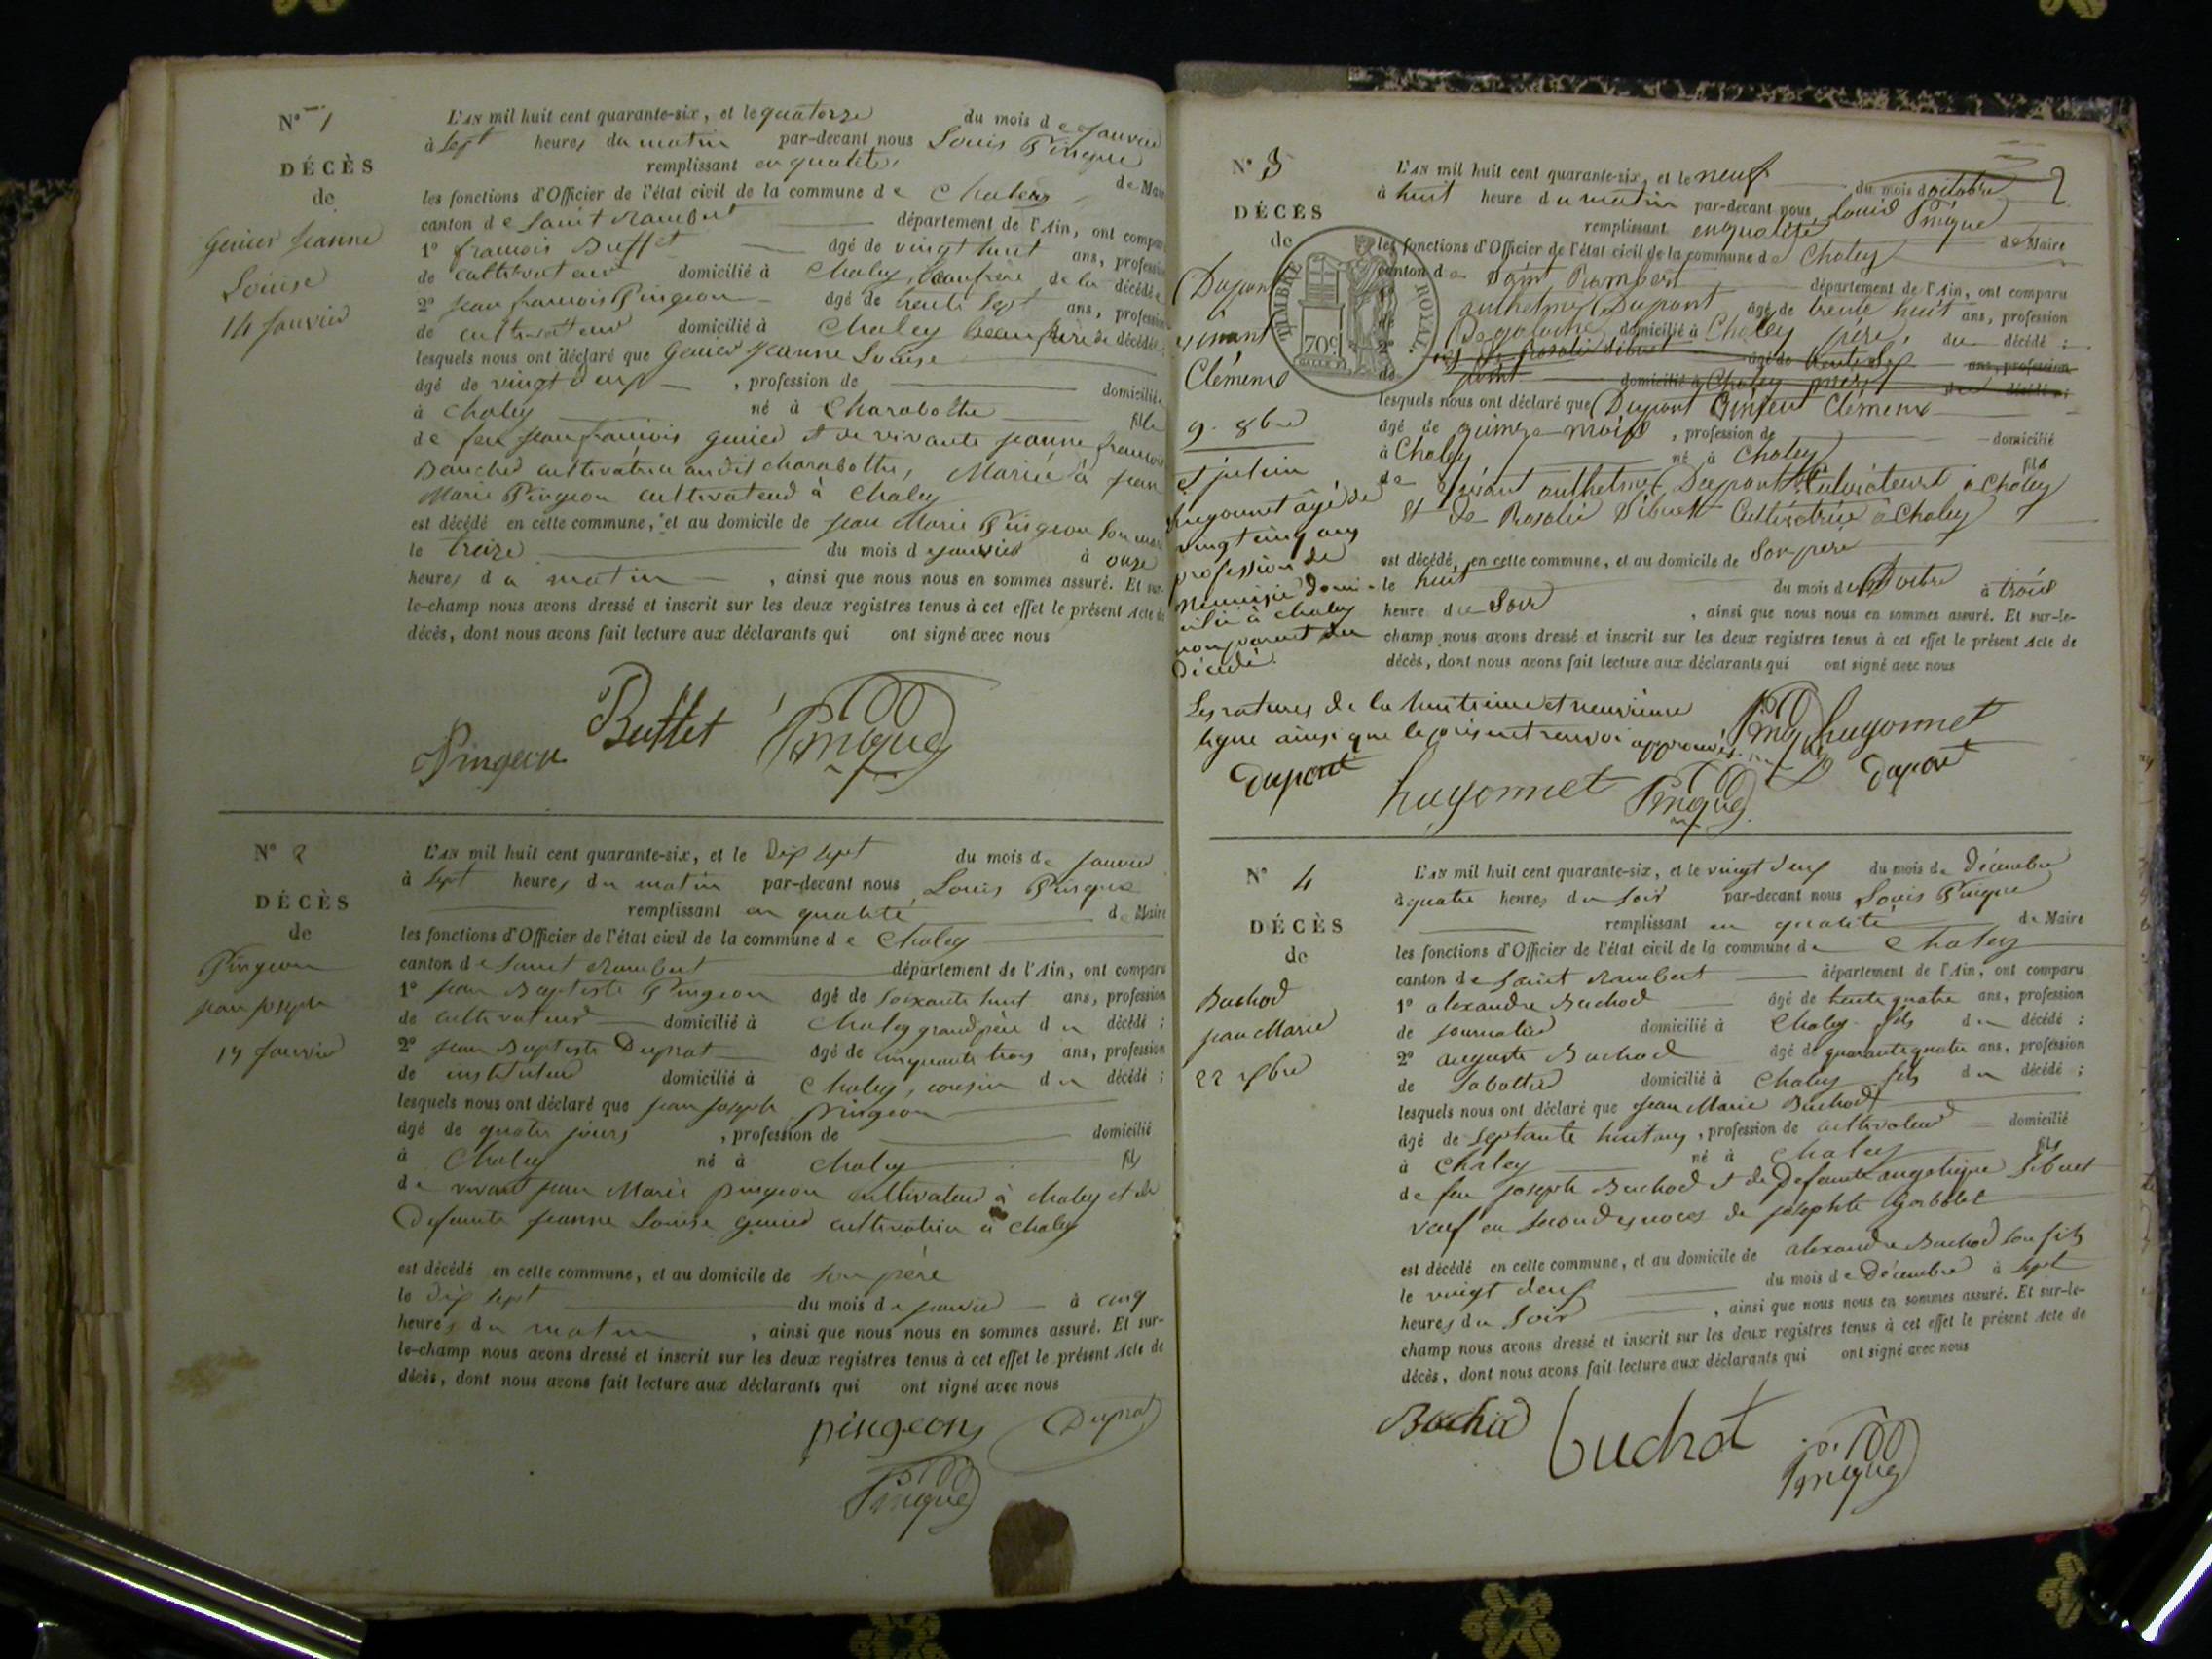 N° 1
DÉCÈS
de
Genier Jeanne
Louise
14 Janvier
L'AN mil huit cent quarante-six, et le quatorze du mois de Janvier
à sept heures du matin par-devant nous Louis Pingue
remplissant en qualité de Maire
les fonctions d'Officier de l'état civil de la commune de Chaley
canton de Saint Rambert département de l'Ain, ont comparu
1° françois Buffet âgé de vingt huit ans, profession
de cultivateur domicilié à Chaley, beaufrère de la décédée
2° Jean françois Pingeon âgé de trente sept ans, profession
de cultivateur domicilié à Chaley beaufrère de décédée
lesquels nous ont déclaré que Genier Jeanne Louise
âgé de vingt deux , profession de domiciliée
à Chaley né à Charabotte fille
de feu jean françois genier et de vivante jeanne françoise
cultivatrice audit charabotte, Mariée à jean
Marie Pingeon cultivateur à Chaley
est décédé en cette commune, et au domicile de jean Marie Pingeon son mari
le treize du mois de janvier à onze
heures du matin , ainsi que nous nous en sommes assuré. Et sur-
le-champ nous avons dressé et inscrit sur les deux registres tenus à cet effet le présent Acte de
décès, dont nous avons fait lecture aux déclarants qui ont signé avec nous
Pingeon Buffet Pingue
N° 2
DÉCÈS
de
Pingeon
jean joseph
17 Janvier
L'AN mil huit cent quarante-six, et le dix sept du mois de janvier
à sept heures du matin par-devant nous Louis Pingue
remplissant en qualité de Maire
les fonctions d'Officier de l'état civil de la commune de Chaley
canton de Saint Rambert département de l'Ain, ont comparu
1° jean Baptiste Pingeon âgé de soixante huit ans, profession
de cultivateur domicilié à Chaley grand père du décédé ;
2° jean Baptiste Duprat âgé de cinquante trois ans, profession
de instituteur domicilié à Chaley, cousin du décédé ;
lesquels nous ont déclaré que jean joseph pingeon
âgé de quatre jours , profession de domicilié
à Chaley né à chaley fils
de vivant jean Marie pingeon cultivateur à chaley et de
Defunte jeanne Louise genier cultivatrice à chaley
est décédé en cette commune, et au domicile de son père
le dix sept du mois de janvier à cinq
heures du matin , ainsi que nous nous en sommes assuré. Et sur-
le-champ nous avons dressé et inscrit sur les deux registres tenus à cet effet le présent Acte de
décès, dont nous avons fait lecture aux déclarants qui ont signé avec nous
pingeon Duprat
Pingue
2
N° 3
DÉCÈS
de
Dupont
Clément
9 8bre
TIMBRE ROYAL
70c
L'AN mil huit cent quarante-six, et le neuf du mois d'octobre
à huit heure du matin par-devant nous Louis Pingue
remplissant en qualité de Maire
les fonctions d'Officier de l'état civil de la commune de Chaley
canton de Saint Rambert département de l'Ain, ont comparu
anthelme Dupont âgé de trente huit ans, profession
domicilié à Chaley père, du décédé ;
Rosalie Sibuet âgé de ans, profession
domicilié à Chaley mère du décédé ;
lesquels nous ont déclaré que Dupont Vincent Clément
âgé de quinze mois , profession de domicilié
à Chaley né à Chaley fils
de vivant anthelme Dupont Cultivateur à Chaley
et de Rosalie Sibuet Cultivatrice à Chaley
est décédé, en cette commune, et au domicile de Son père
le huit du mois de octobre à trois
heure du Soir , ainsi que nous nous en sommes assuré. Et sur-le-
champ nous avons dressé et inscrit sur les deux registres tenus à cet effet le présent Acte de
décès, dont nous avons fait lecture aux déclarants qui ont signé avec nous
et julien
huyonnet âgé de
vingt cinq ans
profession de
menuisier domi-
cilié à chaley
non parent du
Décédé.
Les ratures de la huitième et neuvième
ligne ainsi que le présent renvoi approuvés
Pingue huyonnet
dupont huyonnet Pingue dupont
N° 4
DÉCÈS
de
Buchod
jean Marie
22 Xbre
L'AN mil huit cent quarante-six, et le vingt deux du mois de Décembre
à quatre heures du soir par-devant nous Louis Pingue
remplissant en qualité de Maire
les fonctions d'Officier de l'état civil de la commune de Chaley
canton de Saint Rambert département de l'Ain, ont comparu
1° alexandre Buchod âgé de trente quatre ans, profession
de journalier domicilié à Chaley fils du décédé ;
2° auguste Buchod âgé de quarante quatre ans, profession
de Sabottier domicilié à Chaley fils du décédé ;
lesquels nous ont déclaré que Jean Marie Buchod
âgé de septante huit ans , profession de cultivateur domicilié
à Chaley né à chaley fils
de feu joseph Buchod et de Defunte angelique Sibuet
veuf en secondes noces de josephte
est décédé en cette commune, et au domicile de alexandre Buchod son fils
le vingt deux du mois de Décembre à sept
heures du Soir , ainsi que nous nous en sommes assuré. Et sur-le-
champ nous avons dressé et inscrit sur les deux registres tenus à cet effet le présent Acte de
décès, dont nous avons fait lecture aux déclarants qui ont signé avec nous
Buchod buchot Pingue